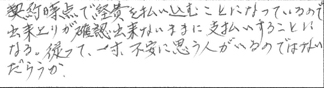 契約時点で経費を払い込むことになっているので
出来上りが確認出来ないままに支払いすることに
なる。従って、一寸、不安に思う人がいるのではない
だろうか。